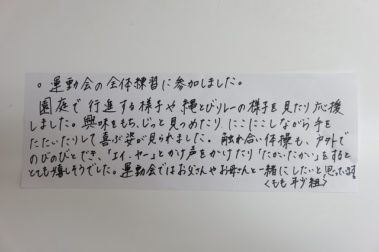 。運動会の全体練習に参加しました。
園庭で行進する様子や縄とびリレーの様子を見たり応援
しました。興味をもち、じっと見つめたり、にこにこしながら手を
たたいたりして喜ぶ姿が見られました。触れ合い体操も、戸外で
のびのびとでき、「エイ、ヤー」とかけ声をかけたり「たかいたかい」をすると
とても嬉しそうでした。運動会ではお父さんやお母さんと一緒にしたいと思ってます
くもも 組